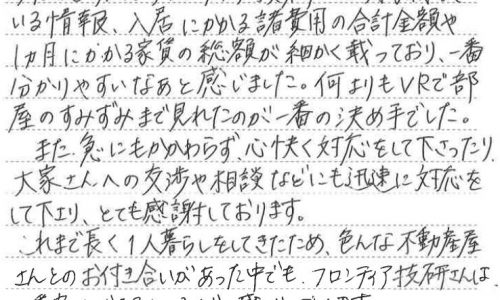 いる情報、入居にかかる諸費用の合計金額や
1ヵ月にかかる家賃の総額が細かく載っており、一番
分かりやすいなあと感じました。何よりもVRで部
屋のすみずみまで見れたのが一番の決め手でした。
また、急にもかかわらず、心快く対応をして下さったり
大家さんへの交渉や相談などにも迅速に対応を
して下さり、とても感謝しております。
これまで長く1人暮らしをしてきたため、色んな不動産屋
さんとのお付き合いがあった中でも、フロンティア技研さんは